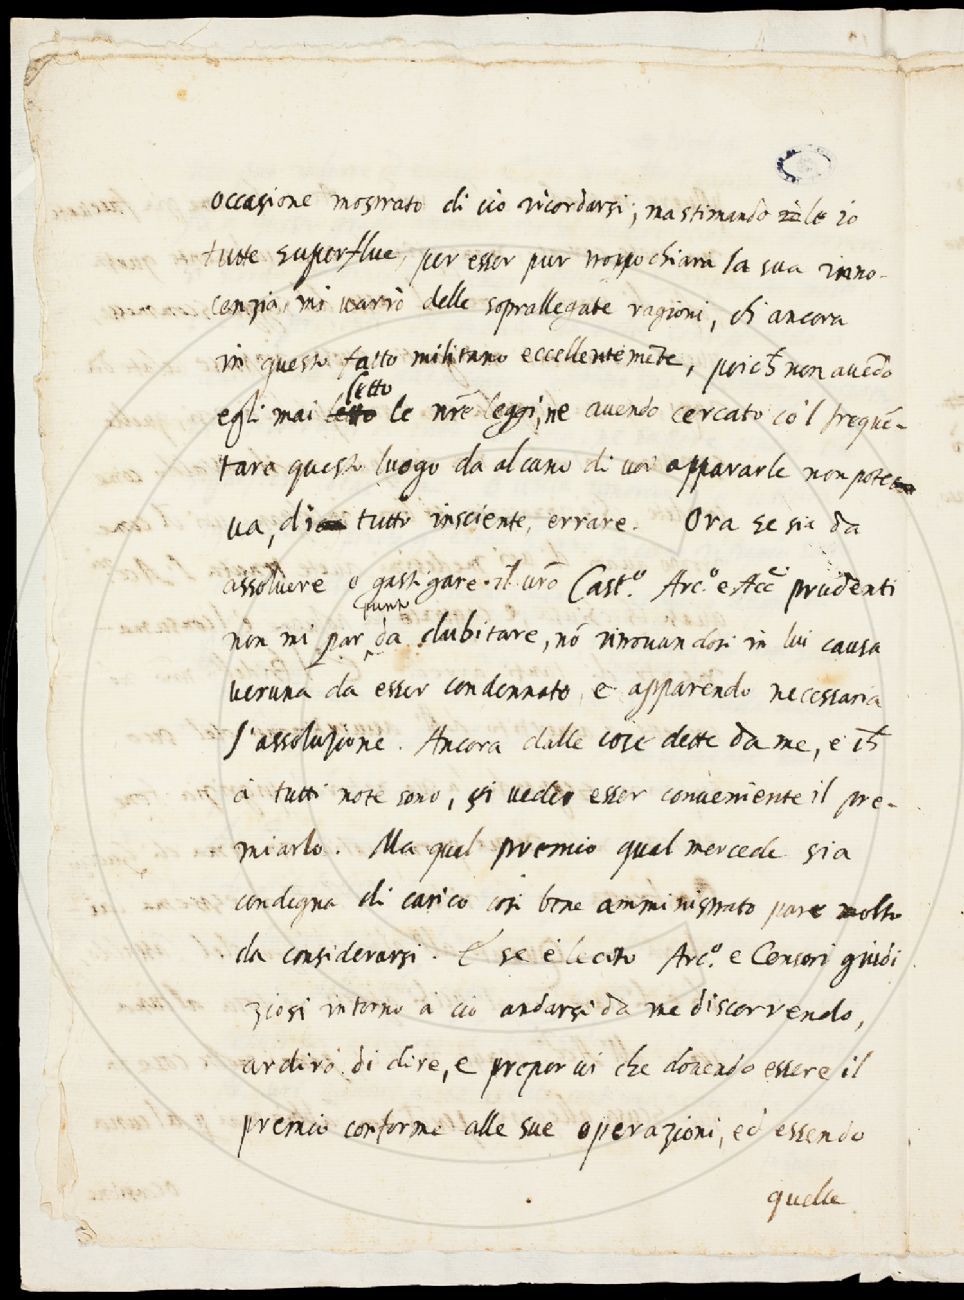 occasione mostrato di ciò ricordarsi; ma stimandole io
tutte superflue, per esser pur troppo chiara la sua inno-
cenzia, mi varrò delle soprallegate ragioni, ch̃ ancora
in questo fatto militano eccellentemẽte, poich̃ non auẽdo
egli mai letto le nr̃e leggi, ne auendo cercato cõ'l frequẽ-
tare questo luogo da alcuno di uoi appararle non pote
ua, di tutto insciente, errare. Ora se sia da
assoluere o gastigare il ur̃o Cast.º Arc.º e Acc.i prudenti
non mi par punto da dubitare, nõ ritrouandosi in lui causa
ueruna da esser condennato, e apparendo necessaria
l'assoluzione. Ancora dalle cose dette da me, e ch̃
à tutti note sono, si uede esser conueniente il pre-
miarlo. Ma qual premio qual mercede sia
condegna di carico così bene amministrato pare molto
da considerarsi. E se è lecito Arc.º e Censori giudi
ziosi intorno à ciò andarsi da me discorrendo,
ardirò di dire, e proporui che douendo essere il
premio conforme alle sue operazioni, ed essendo
quelle